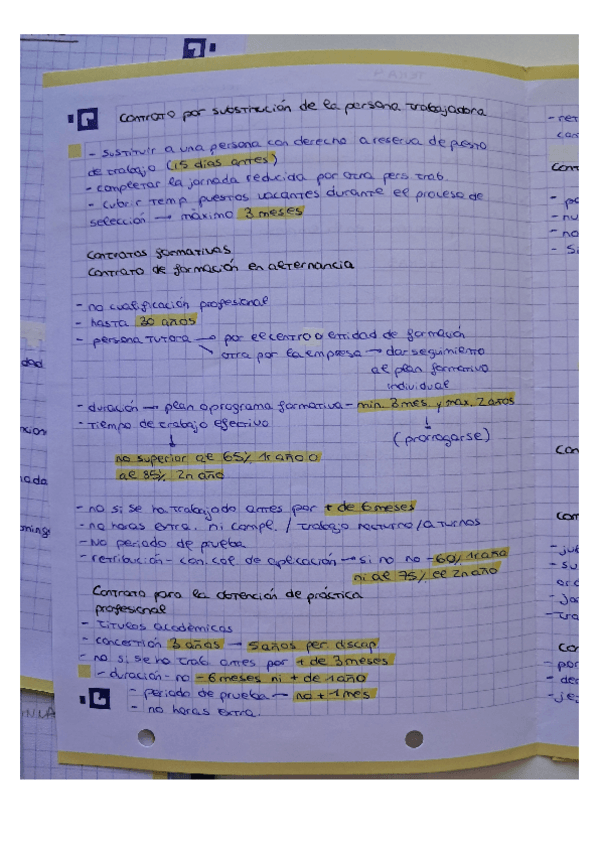 contrato por substitución de la persona trabajadora
- sustituir a una persona con derecho a reserva de puesto
de trabajo (15 días antes)
- completar la jornada reducida por otra pers trab.
- cubrir temp. puestos vacantes durante el proceso de
selección → máximo 3 meses
contratos formativos
contrato de formación en alternancia
- no cualificación profesional
- hasta 30 años
- persona tutora → por el centro o entidad de formación
otra por la empresa → dar seguimiento
al plan formativo
individual
- duración → plan o programa formativo - min. 3 mes. y max. 2 años
- tiempo de trabajo efectivo
(prorrogarse)
no superior al 65% 1r año o
al 85% 2n año
- no si se ha trabajado antes por + de 6 meses
- no horas extra. ni comple. / trabajo nocturno / a turnos
- No periodo de prueba
- retribución - con. col de aplicación → si no no - 60% 1r año
ni al 75% el 2n año
Contrato para la obtención de práctica
profesional
- títulos académicos
- concertión 3 años → 5 años per. discap
- no si se ha trab antes por + de 3 meses
- duración - no - 6 meses ni + de 1 año
- periodo de prueba → no + 1 mes
- no horas extra.